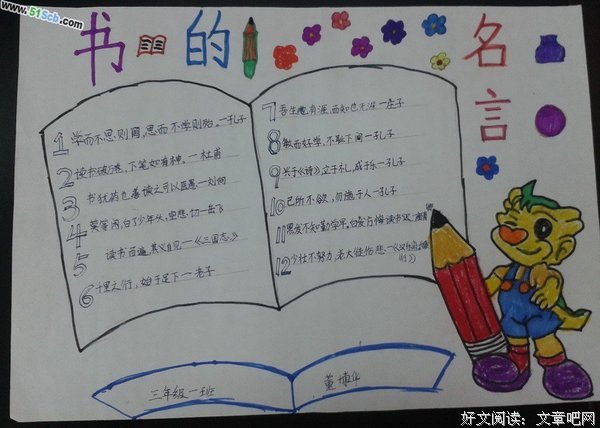 www.51Scb.com
书的
名言
1 学而不思则罔,思而不学则殆。一孔子
2 读书破万卷,下笔如有神。一杜甫
3 书犹药也善读之可以医愚一刘向
4 莫等闲,白了少年头,空悲切一岳飞
5 读书百遍,其义自见一《三国志》
6 千里之行,始于足下一老子
7 吾生也有涯,而知也无涯一庄子
8 敏而好学,不耻下问一孔子
9 兴于《诗》立于礼,成于乐一孔子
10 己所不欲,勿施于人一孔子
11 黑发不知勤学早,白首方悔读书迟
12 少壮不努力,老大徒伤悲一《汉乐府
行》
三年级一班
董博华
好文阅读:文章吧网